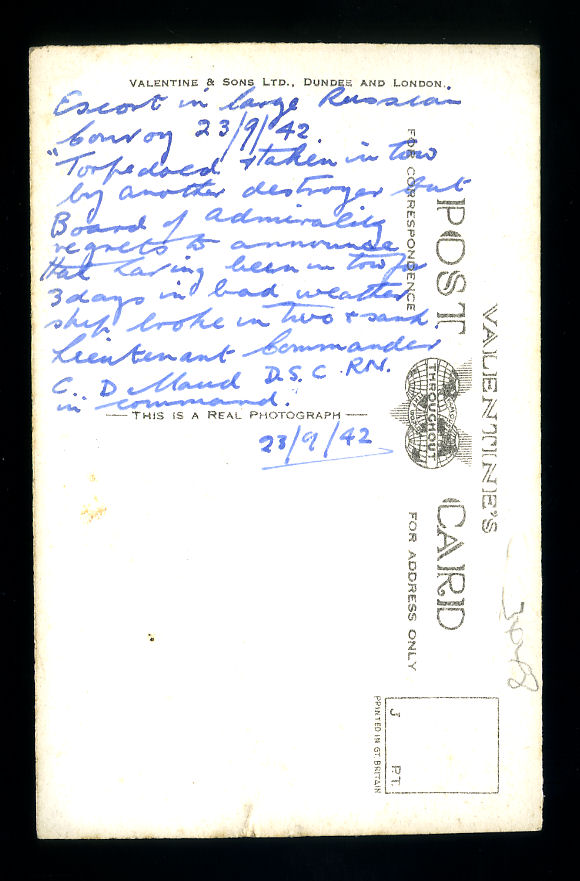 VALENTINE & SONS LTD., DUNDEE AND LONDON.
Escort in large Russian
Convoy 23/9/42
"Torpedoed & taken in tow
by another destroyer but
Board of Admirality
regrets to announce
that having been in tow for
3 days in bad weather
ship broke in two & sank
Lieutenant Commander
C. D Maud D.S.C RN.
in command.
THIS IS A REAL PHOTOGRAPH
23/9/42
VALENTINE'S
POST CARD
THROUGHOUT
FOR CORRESPONDENCE
FOR ADDRESS ONLY
J PT.
PRINTED IN GT. BRITAIN